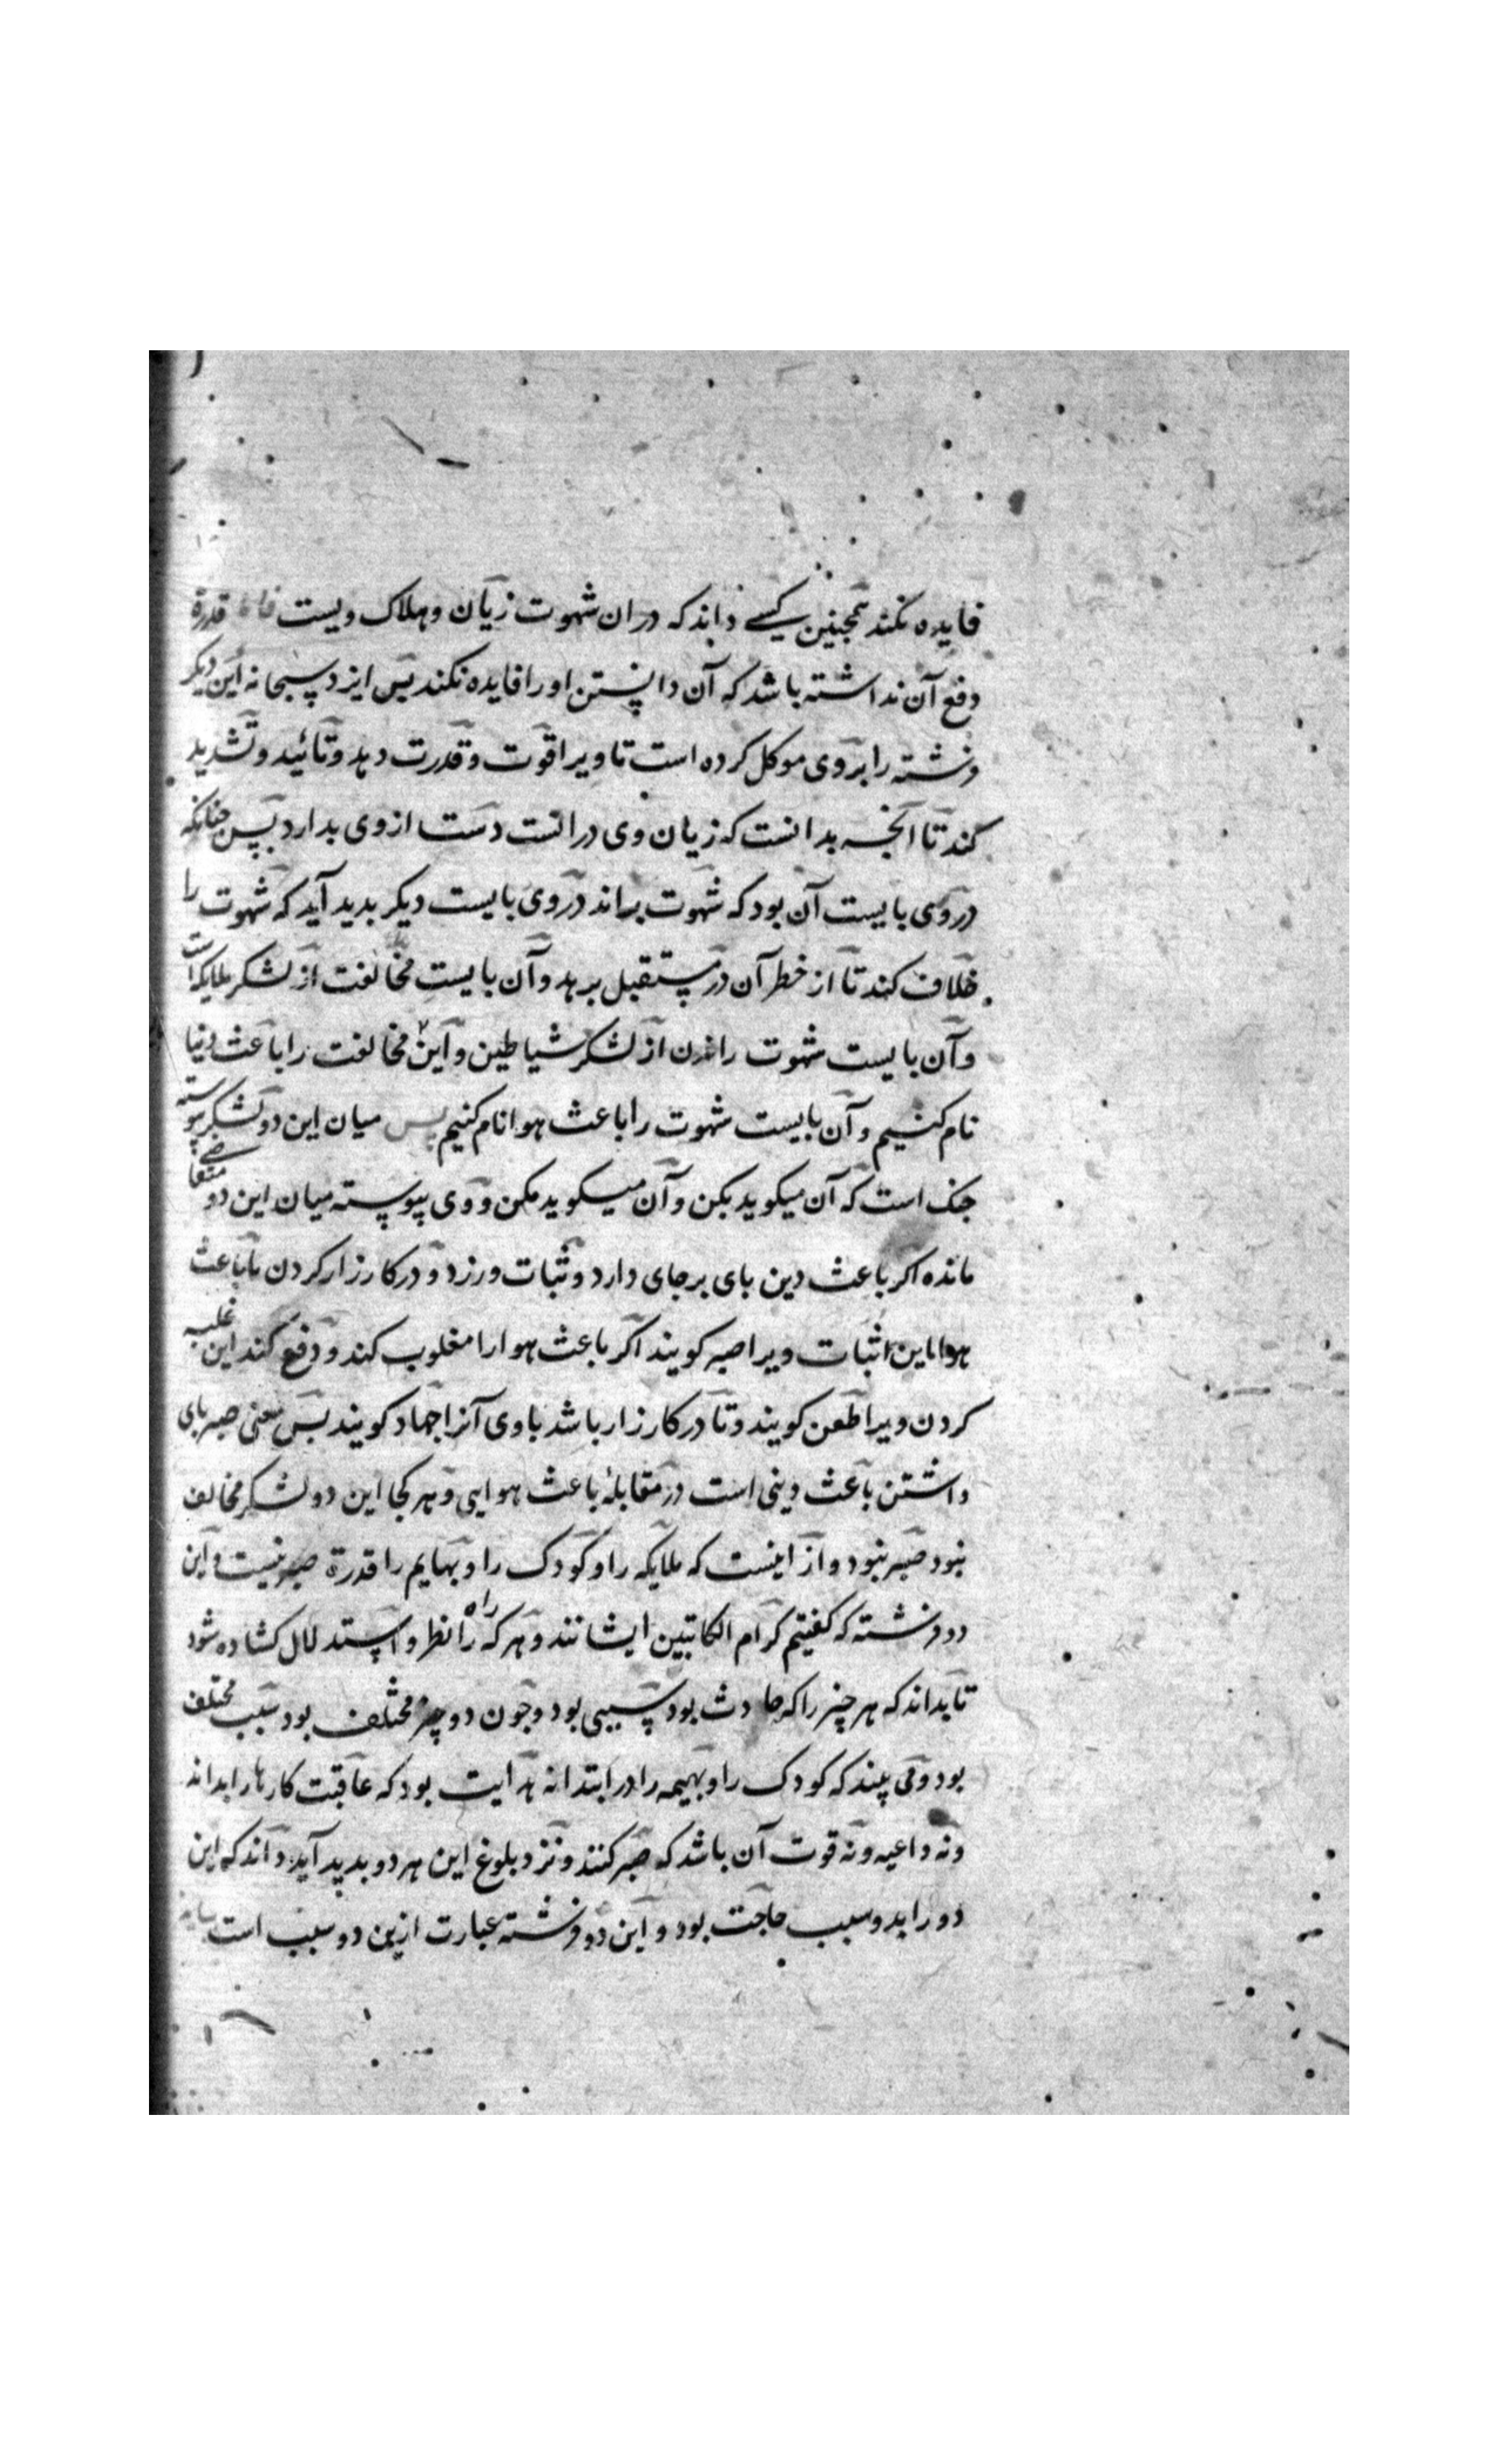 فایده نکند همچنین کسی داند که در ان شهوت زیان و هلاک ویست قدرة
دفع آن نداشته باشد که آن دانستن او را فایده نکند پس ایزد سبحانه این دیکر
فرشته را بر وی موکل کرده است تا ویرا قوت و قدرت دهد و تائید و تشدید
کند تا آنجه بدانست که زیان وی درانست دست از وی بدارد پس جنانکه
در وی بایست آن بود که شهوت براند در وی بایست دیکر بدید آید که شهوت را
خلاف کند تا از خطر آن در مستقبل برهد و آن بایست مخالفت از لشکر ملایکه است
و آن بایست شهوت راندن از لشکر شیاطین و این مخالفت را باعث دنیا
نام کنیم و آن بایست شهوت را باعث هوا نام کنیم پس میان این دو لشکر پیوسته
جنک است که آن میکوید بکن و آن میکوید مکن و وی پیوسته میان این دو متقاضی
مانده اکر باعث دین بای بر جای دارد و ثبات ورزد و در کارزار کردن با باعث
هوا این اثبات ویرا صبر کویند اکر باعث هوا را مغلوب کند و دفع کند این غلبه
کردن ویرا طعن کویند و تا در کارزار باشد با وی آنرا جهاد کویند بس معنی صبر بای
داشتن باعث دینی است در مقابلهٔ باعث هوایی و هر کجا این دو لشکر مخالف
نبود صبر نبود و از اینست که ملایکه را و کودک را و بهایم را قدرة صبر نیست و این
دو فرشته که کفتیم کرام الکاتبین ایشانند و هر که را راه نظر و استدلال کشاده شود
تا بداند که هر چیز را که حادث بود سببی بود و جون دو چیز مختلف بود سبب مختلف
بود و می بیند که کودک را و بهیمه را در ابتدا نه هدایت بود که عاقبت کارها را بداند
و نه داعیه و نه قوت آن باشد که صبر کنند و نزد بلوغ این هر دو بدید آید داند که این
دو را بدو سبب حاجت بود و این دو فرشته عبارت ازین دو سبب است